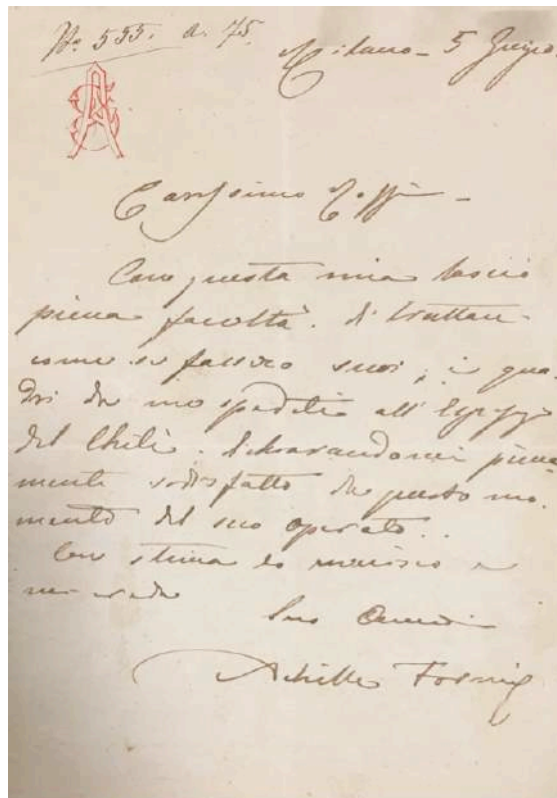 No 555. a. 75.
Milano - 5 Giugno
Carissimo
Con questa mia lascio
piena facoltà di trattare
come se fossero suoi, i qua-
dri da me spediti all'
del Chilì. dichiarandomi piena-
mente sodisfatto da questo mo-
mento del suo operato..
Con stima la riverisco e
mi creda
Suo
Achille